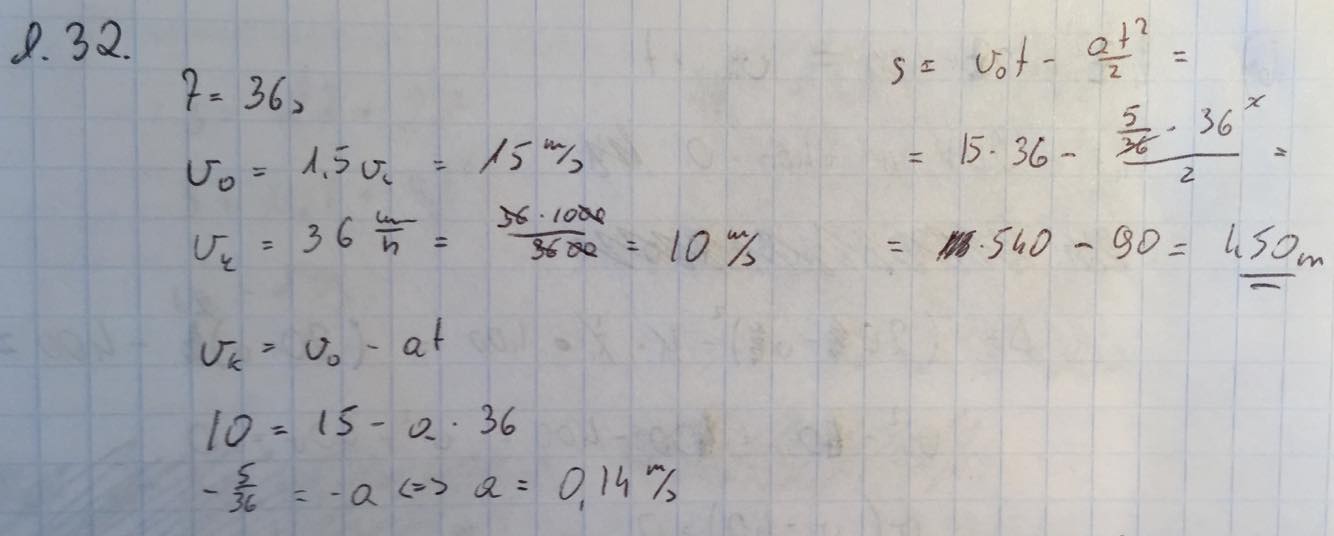 l. 32.
7 = 36 s
v₀ = 1,5 v. = 15 m/s
v_k = 36 m/h = 36 · 1000 / 3600 = 10 m/s
v_k = v₀ - at
10 = 15 - a · 36
- 5/36 = - a <=> a = 0,14 m/s
s = v₀t - at²/2 =
= 15 · 36 - (5/36 · 36ˣ)/2 =
= · 540 - 90 = 450 m